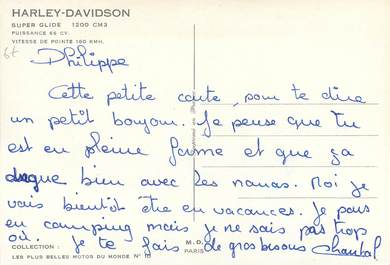 HARLEY-DAVIDSON
SUPER GLIDE 1200 CM3
PUISSANCE 66 CV.
VITESSE DE POINTE 180 KMH.
Philippe
Cette petite carte, pour te dire
un petit bonjour. Je pense que tu
est en pleine forme et que ça
drague bien avec les nanas. Moi je
vais bientôt être en vacances. Je pars
en camping mais je ne sais pas trop
où. Je te fais de gros bisous Chantal
COLLECTION :
LES PLUS BELLES MOTOS DU MONDE N° 10
M.D.
PARIS